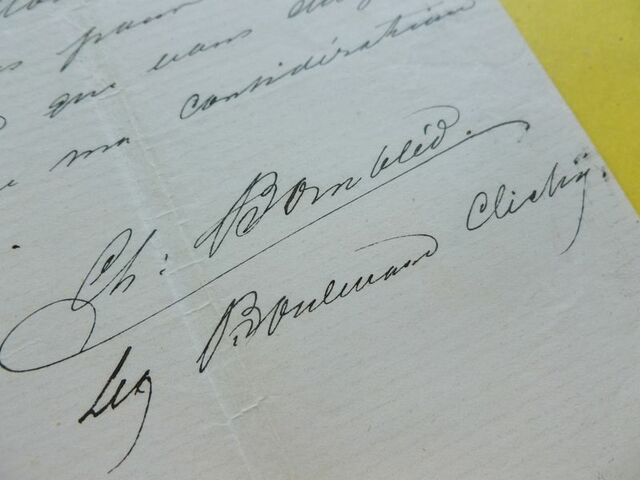 pour
que vous
ma considération
Ch: Bombled.
Boulevard Clichy.